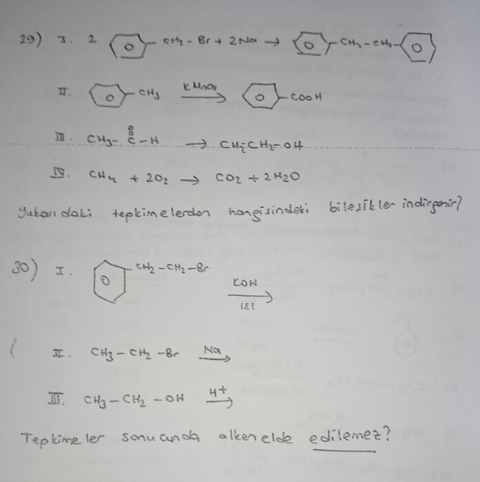 29) I. 2 CH₂ - Br + 2Na → CH₂ - CH₂
II. CH₃ KMnO₄ → COOH
III. CH₃ - C - H → CH₃CH₂-OH
O
IV. CH₄ + 2O₂ → CO₂ + 2H₂O
Yukarıdaki tepkimelerden hangisindeki bileşikler indirgenir?
30) I. CH₂-CH₂-Br KOH →
ısı
II. CH₃ - CH₂ - Br Na →
III. CH₃ - CH₂ - OH H⁺ →
Tepkimeler sonucunda alken elde edilemez?